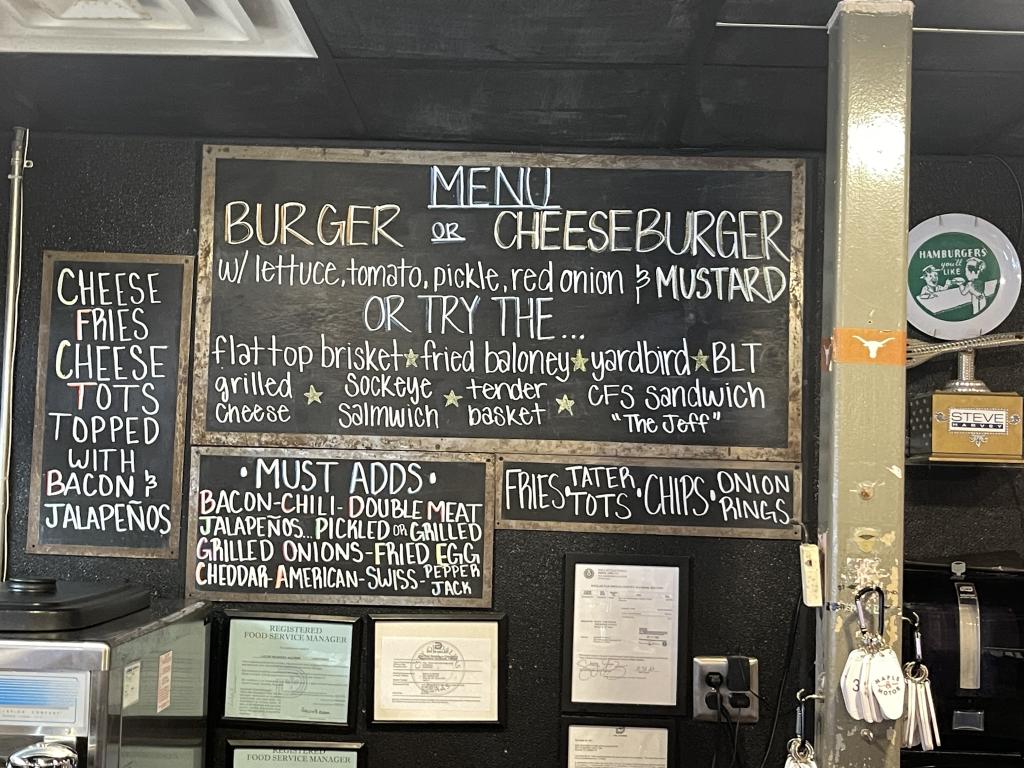 MENU
BURGER OR CHEESEBURGER
w/ lettuce, tomato, pickle, red onion & MUSTARD
OR TRY THE...
flattop brisket ★ fried baloney ★ yardbird ★ BLT
grilled cheese ★ sockeye salmwich ★ tender basket ★ CFS sandwich "The Jeff"
CHEESE
FRIES
CHEESE
TOTS
TOPPED
WITH
BACON &
JALAPEÑOS
• MUST ADDS •
BACON-CHILI-DOUBLE MEAT
JALAPEÑOS...PICKLED OR GRILLED
GRILLED ONIONS-FRIED EGG
CHEDDAR-AMERICAN-SWISS-PEPPER JACK
FRIES • TATER TOTS • CHIPS • ONION RINGS
HAMBURGERS
you'll
LIKE
STEVE
HARVEY
REGISTERED
FOOD SERVICE MANAGER
REGISTERED
FOOD SERVICE MANAGER
3
MAPLE
MOTOR